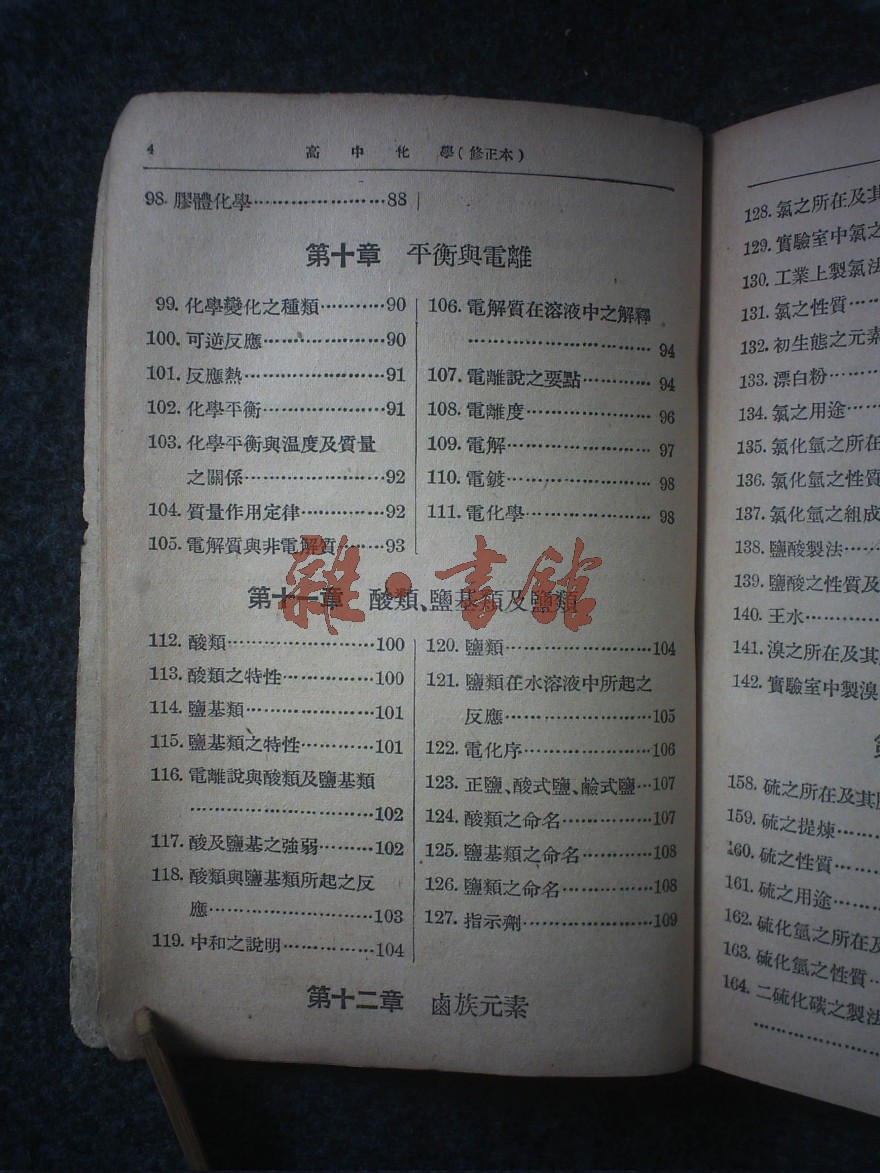 4
高中化學(修正本)
98. 膠體化學……………………88
第十章 平衡與電離
99. 化學變化之種類…………90
100. 可逆反應…………………90
101. 反應熱……………………91
102. 化學平衡…………………91
103. 化學平衡與溫度及質量
之關係……………………92
104. 質量作用定律……………92
105. 電解質與非電解質………93
106. 電解質在溶液中之解釋
…………………………… 94
107. 電離說之要點………… 94
108. 電離度………………… 96
109. 電解…………………… 97
110. 電鍍…………………… 98
111. 電化學………………… 98
第十一章 酸類、鹽基類及鹽類
112. 酸類……………………100
113. 酸類之特性……………100
114. 鹽基類…………………101
115. 鹽基類之特性…………101
116. 電離說與酸類及鹽基類
……………………………102
117. 酸及鹽基之強弱………102
118. 酸類與鹽基類所起之反
應…………………………103
119. 中和之說明……………104
120. 鹽類……………………104
121. 鹽類在水溶液中所起之
反應………………………105
122. 電化序…………………106
123. 正鹽、酸式鹽、鹼式鹽…107
124. 酸類之命名……………107
125. 鹽基類之命名…………108
126. 鹽類之命名……………108
127. 指示劑…………………109
第十二章 鹵族元素
128. 氯之所在及其
129. 實驗室中氯之
130. 工業上製氯法
131. 氯之性質…
132. 初生態之元素
133. 漂白粉……
134. 氯之用途…
135. 氯化氫之所在
136. 氯化氫之性質
137. 氯化氫之組成
138. 鹽酸製法…
139. 鹽酸之性質及
140. 王水………
141. 溴之所在及其
142. 實驗室中製溴
158. 硫之所在及其
159. 硫之提煉…
160. 硫之性質…
161. 硫之用途…
162. 硫化氫之所在及
163. 硫化氫之性質…
164. 二硫化碳之製法
……………
雜·書館